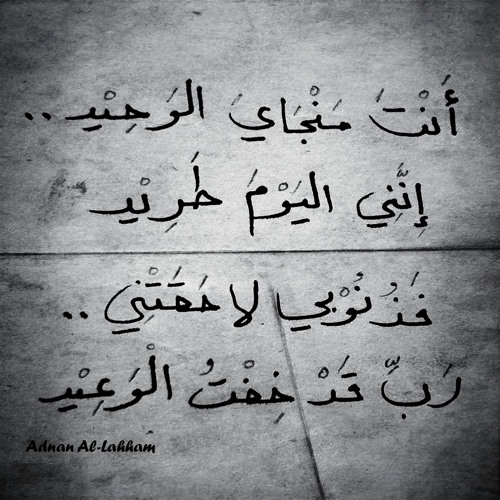 أَنْتَ مَنْجَايَ الوَحِيْد..
إِنَّنِي اليَوْمَ طَرِيْد
فَذُنُوْبِي لاحَقَتْنِي..
رَبِّ قَدْ خِفْتُ الْوَعِيْد
Adnan Al-Lahham